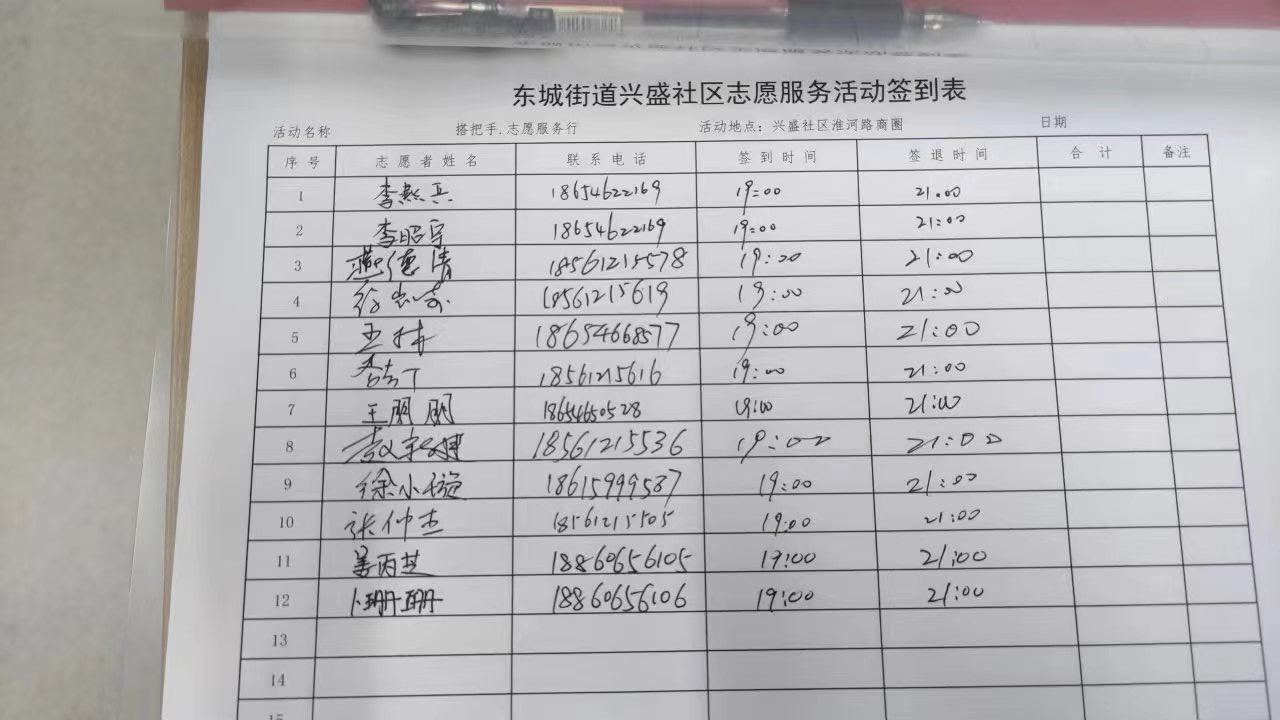 东城街道兴盛社区志愿服务活动签到表
活动名称 搭把手.志愿服务行 活动地点：兴盛社区淮河路商圈 日期
序号 志愿者姓名 联系电话 签到时间 签退时间 合计 备注
1 李燕兵 18654622169 19:00 21.00
2 李昭宇 18654622169 19:00 21:00
3 德清 18561215578 19:00 21:00
4 18561215619 19:00 21:00
5 王林 18654668577 19:00 21:00
6 18561215616 19:00 21:00
7 王朋朋 18654650528 19:00 21:00
8 18561215536 19:00 21:00
9 徐小璇 18615999537 19:00 21:00
10 张仲杰 18561215505 19:00 21:00
11 姜丙芝 18860656105 19:00 21:00
12 卜珊珊 18860656106 19:00 21:00
13
14
15